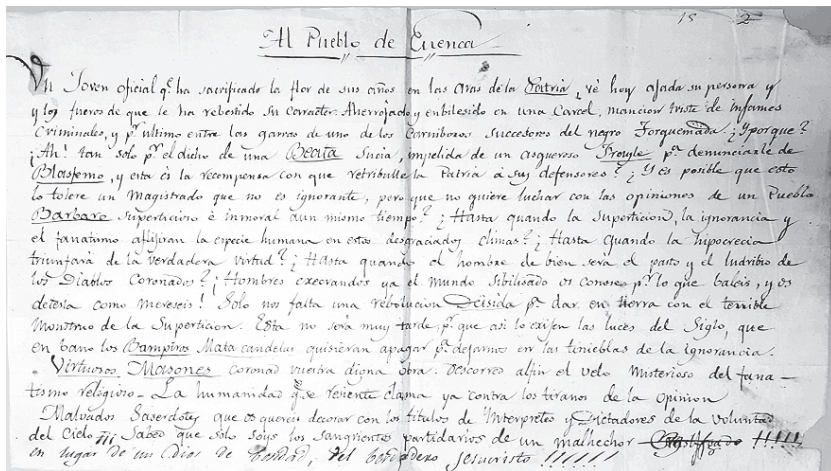 18 2
Al Pueblo de Cuenca
Un Joven oficial qe. ha sacrificado la flor de sus años en las aras de la Patria, vé hoy ajada su persona y
y los fueros de que le ha rebestido su caracter. Aherrojado y enbilesido en una Carcel, mancion triste de infames
Criminales, y pr. ultimo entre las garras de uno de los Carniboros succesores del negro Torquemada. ¿Yporque?
¡Ah! tan solo pr. el dicho de una Beata Sucia, impelida de un asqueroso Frayle pa. denunciarle de
Blasfemo, y esta és la recompensa con que retribulle la Patria á sus defensores? ¿Yés posible que esto
lo tolere un Magistrado que no es ignorante, pero que no quiere luchar con las opiniones de un Pueblo
Barbaro superticioso é inmoral á un mismo tiempo? ¿Hasta quando la superticion, la ignorancia y
el fanatismo aflijiran la especie humana en estos desgraciados climas? ¿Hasta quando la hipocrecia
triunfará de la verdadera virtud? ¿Hasta quando el hombre de bien será el pasto y el ludribio de
los Diablos Coronados? ¡Hombres execrandos ya el mundo sibilisado os conose pr. lo que baleis, y os
detesta como mereseis! Solo nos falta una rebolucion Desisida pa. dar en tierra con el terrible
Monstruo de la Superticion. Esta no será muy tarde, pr. que asi lo exijen las luces del Siglo, que
en bano los Bampiros Mata candelas quisieran apagar pa. dejarnos en las tinieblas de la ignorancia.
Virtuosos Masones coronad vuestra digna obra. Descorred alfin el velo Misterioso del fana-
tismo religioso. La humanidad qe. se reciente clama ya contra los tiranos de la Opinion
Malvados Saserdotes que os quereis decorar con los titulos de Interpretes y Dictadores de la voluntad
del Cielo ¡¡¡ Sabed que solo soys los sangrientos partidarios de un malhechor !!!!!
en lugar de un Dios de bondad, del berdadero Jesucristo !!!!!!!